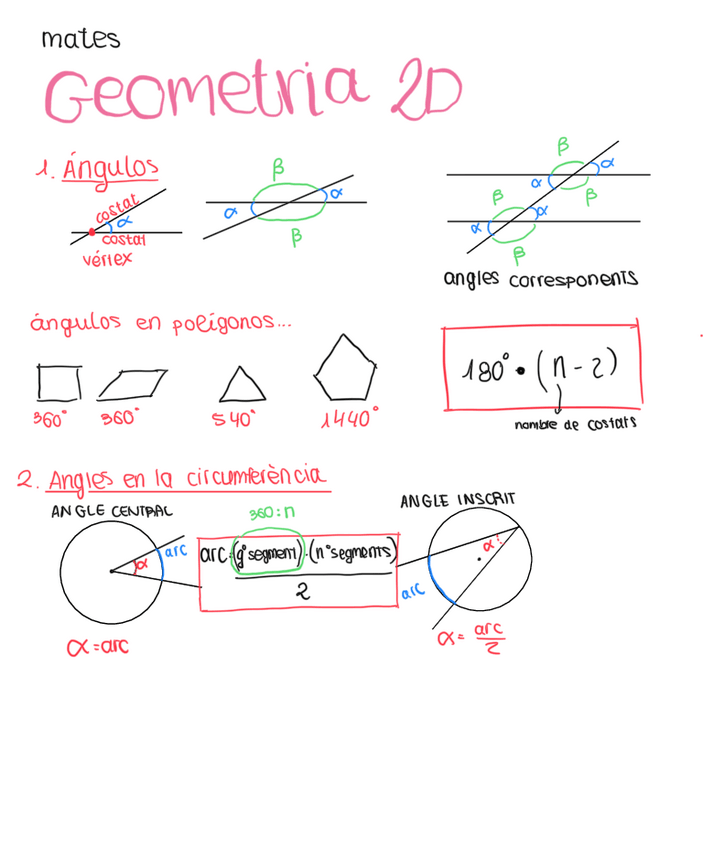 mates
Geometria 2D
1. Ángulos
costat
α
costat
vértex
β
α
α
β
β
α
α
β
β
α
α
β
angles corresponents
ángulos en polígonos...
360°
360°
540°
1440°
180° • (n - 2)
nombre de costats
2. Angles en la circumferència
ANGLE CENTRAL
α
arc
α = arc
360:n
arc·(g° segment)·(n° segments)
2
ANGLE INSCRIT
α
arc
α = arc
2